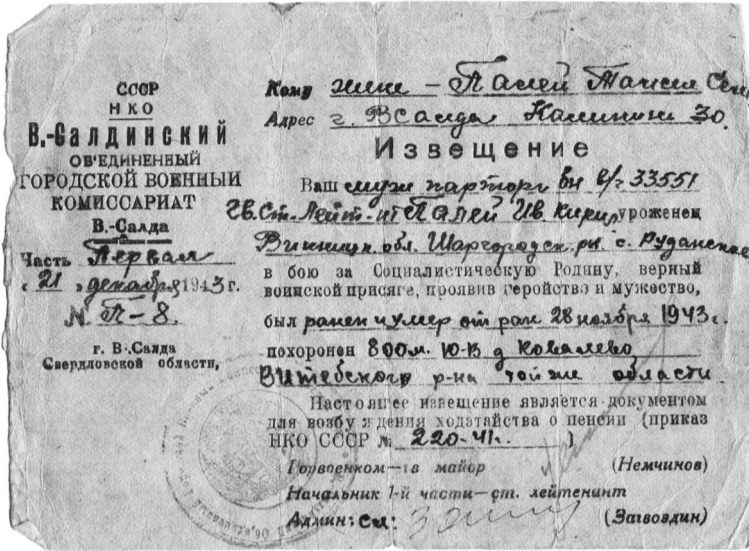 СССР
НКО
В.-Салдинский
ОБ'ЕДИНЕННЫЙ
ГОРОДСКОЙ ВОЕННЫЙ
КОМИССАРИАТ
В.-Салда
Часть Первая
„21" декабря 1943 г.
№ П-8.
г. В-Салда
Свердловской области,
Кому жене - Палей Таисия
Адрес г. ВСалда Калинина 30.
Извещение
Ваш муж парторг в/ч 33551
Гв. Ст. Лейт-нт Палей Ив. Кирил. уроженец
Винницк. обл. Шаргородск. р-н с.
в бою за Социалистическую Родину, верный
воинской присяге, проявив геройство и мужество,
был ранен и умер от ран 28 ноября 1943 г.
похоронен 800м. Ю-В д Ковалево
Витебского р-на той же области
Настоящее извещение является документом
для возбуждения ходатайства о пенсии (приказ
НКО СССР № 220-41г. )
Горвоенком—гв майор (Немчинов)
Начальник 1-й части—ст. лейтенант
Админ: сл: (Загвоздин)